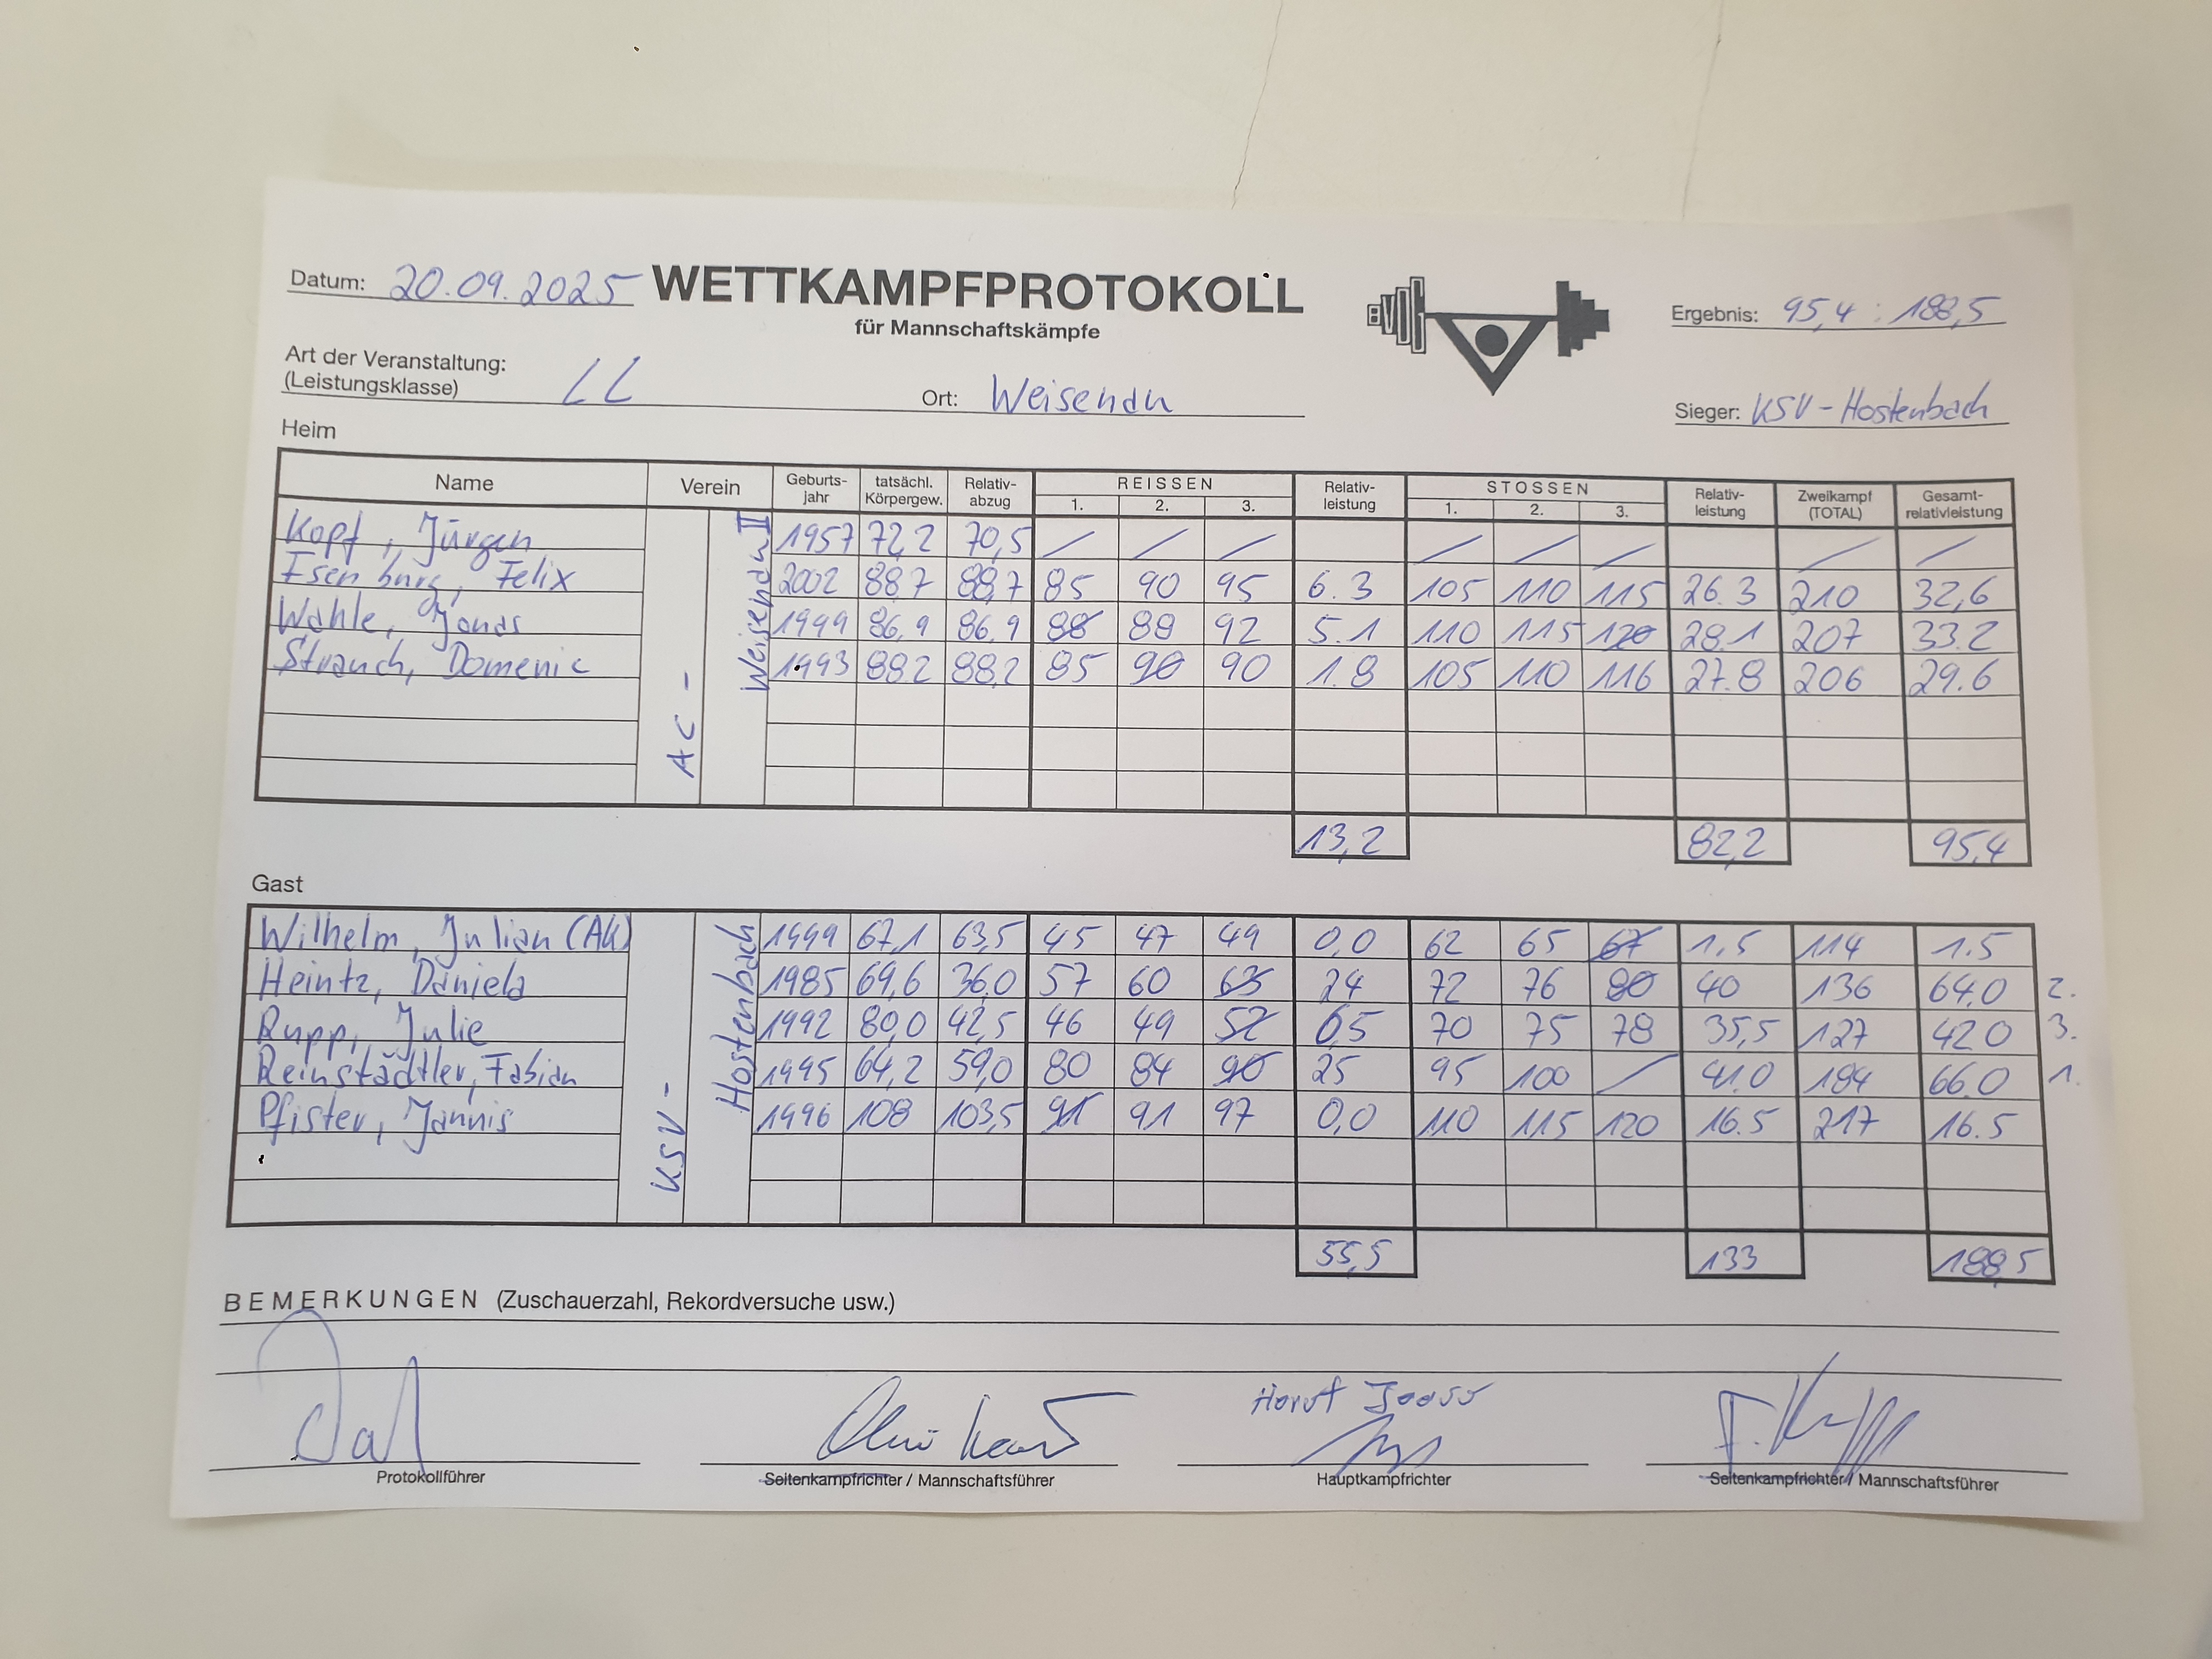 Datum: 20.09.2025 WETTKAMPFPROTOKOLL
für Mannschaftskämpfe
BVDG
Ergebnis: 95,4 : 188,5
Art der Veranstaltung:
(Leistungsklasse) LL
Ort: Weisenau
Sieger: KSV-Hostenbach
Heim
Name Verein Geburts-jahr tatsächl. Körpergew. Relativ-abzug REISSEN 1. 2. 3. Relativ-leistung STOSSEN 1. 2. 3. Relativ-leistung Zweikampf (TOTAL) Gesamt-relativleistung
AC - Weisenau II
Kopf, Jürgen 1957 72,2 70,5 / / / / / / / /
Isenburg, Felix 2002 88,7 88,7 85 90 95 6.3 105 110 115 26.3 210 32,6
Wahle, Jonas 1999 86,9 86,9 88 88 92 5.1 110 115 120 28.1 207 33.2
Strauch, Domenic 1993 88.2 88,2 85 90 90 1.8 105 110 116 27.8 206 29.6
13,2 82,2 95,4
Gast
KSV - Hostenbach
Wilhelm, Julian (AK) 1999 67,1 63,5 45 47 49 0,0 62 65 67 1,5 114 1.5
Heintz, Daniela 1985 69,6 36,0 57 60 63 24 72 76 80 40 136 64.0 2.
Rupp, Julie 1992 80,0 42,5 46 49 52 6,5 70 75 78 35,5 127 42.0 3.
Reinstädtler, Fabian 1995 64,2 59,0 80 84 90 25 95 100 / 41.0 184 66.0 1.
Pfister, Jannis 1996 108 103,5 91 91 97 0,0 110 115 120 16.5 217 16.5
55,5 133 188,5
BEMERKUNGEN (Zuschauerzahl, Rekordversuche usw.)
Horst
Protokollführer Seitenkampfrichter / Mannschaftsführer Hauptkampfrichter Seitenkampfrichter / Mannschaftsführer